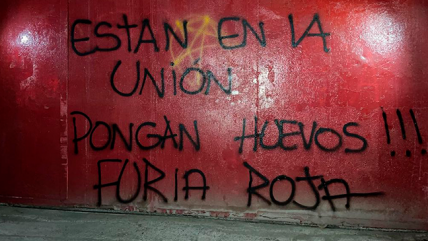 ESTAN EN LA
UNIÓN
PONGAN HUEVOS !!!
FURIA ROJA